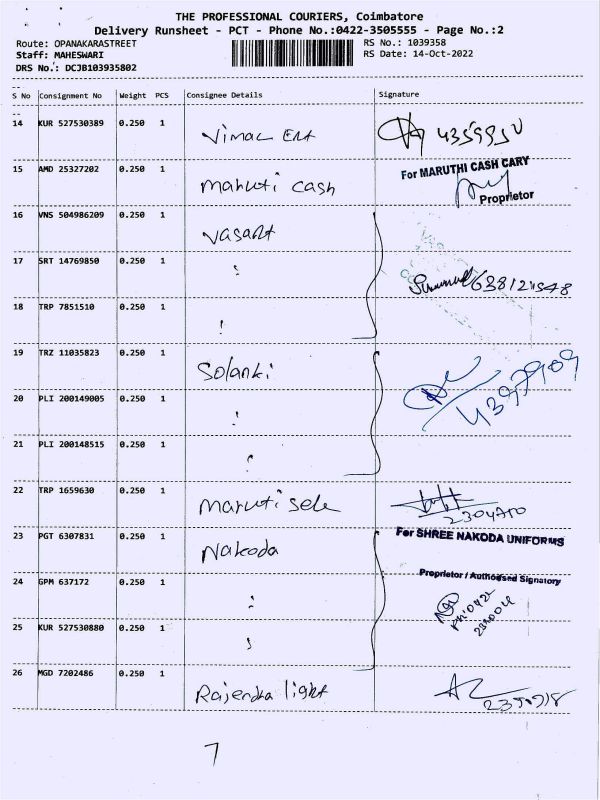 THE PROFESSIONAL COURIERS, Coimbatore
Delivery Runsheet - PCT - Phone No.:0422-3505555 - Page No.:2
Route: OPANAKARASTREET
RS No.: 1039358
Staff: MAHESWARI
RS Date: 14-Oct-2022
DRS No.: DCJB103935802
S No Consignment No Weight PCS Consignee Details Signature
14 KUR 527530389 0.250 1 Vimal Ent
15 AMD 25327202 0.250 1 Maruti cash For MARUTHI CASH CARY
Proprietor
16 VNS 504986209 0.250 1 Vasant
17 SRT 14769850 0.250 1
18 TRP 7851510 0.250 1
19 TRZ 11035823 0.250 1 Solanki
20 PLI 200149005 0.250 1 4397909
21 PLI 200148515 0.250 1
22 TRP 1659630 0.250 1 Maruti sele 2304710
23 PGT 6307831 0.250 1 Nakoda For SHREE NAKODA UNIFORMS
24 GPM 637172 0.250 1 Proprietor / Authorised Signatory
25 KUR 527530880 0.250 1
26 MGD 7202486 0.250 1 Rajendra light
7